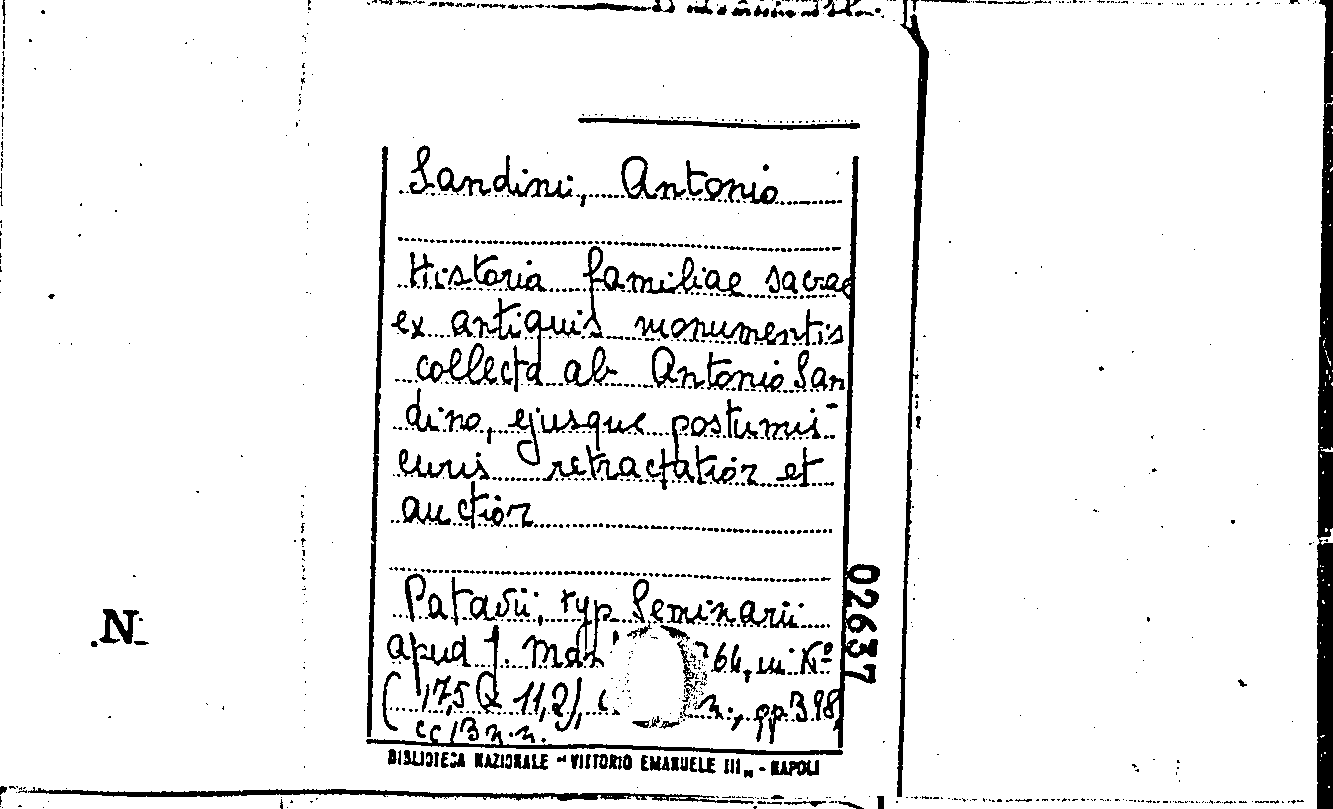 Sandini, Antonio
Historia familiae sacrae
ex antiquis monumentis
collecta ab Antonio San
dino, ejusque postumis
curis retractatior et
auctior
Patavii, typ Seminarii
apud J. Man 764, in
(17,5 11,2), n., pp 398,
cc 13 n.n.
BIBLIOTECA NAZIONALE "VITTORIO EMANUELE III" - NAPOLI
02637
.N.